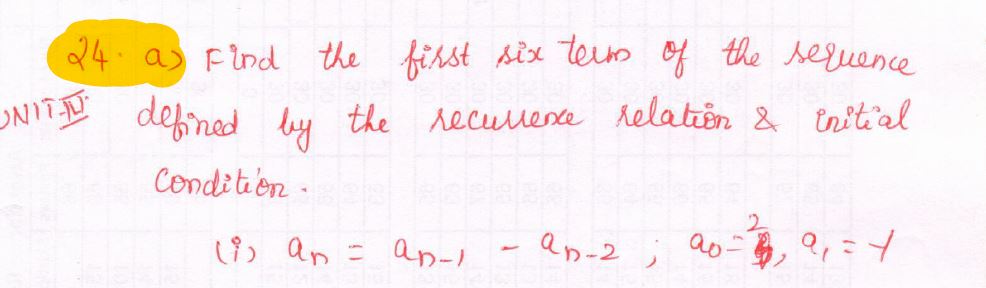 24. a) Find the first six term of the sequence
UNIT-IV defined by the recurrence relation & initial
condition.
(i) an = an-1 - an-2 ; a0 = 2, a1 = -1